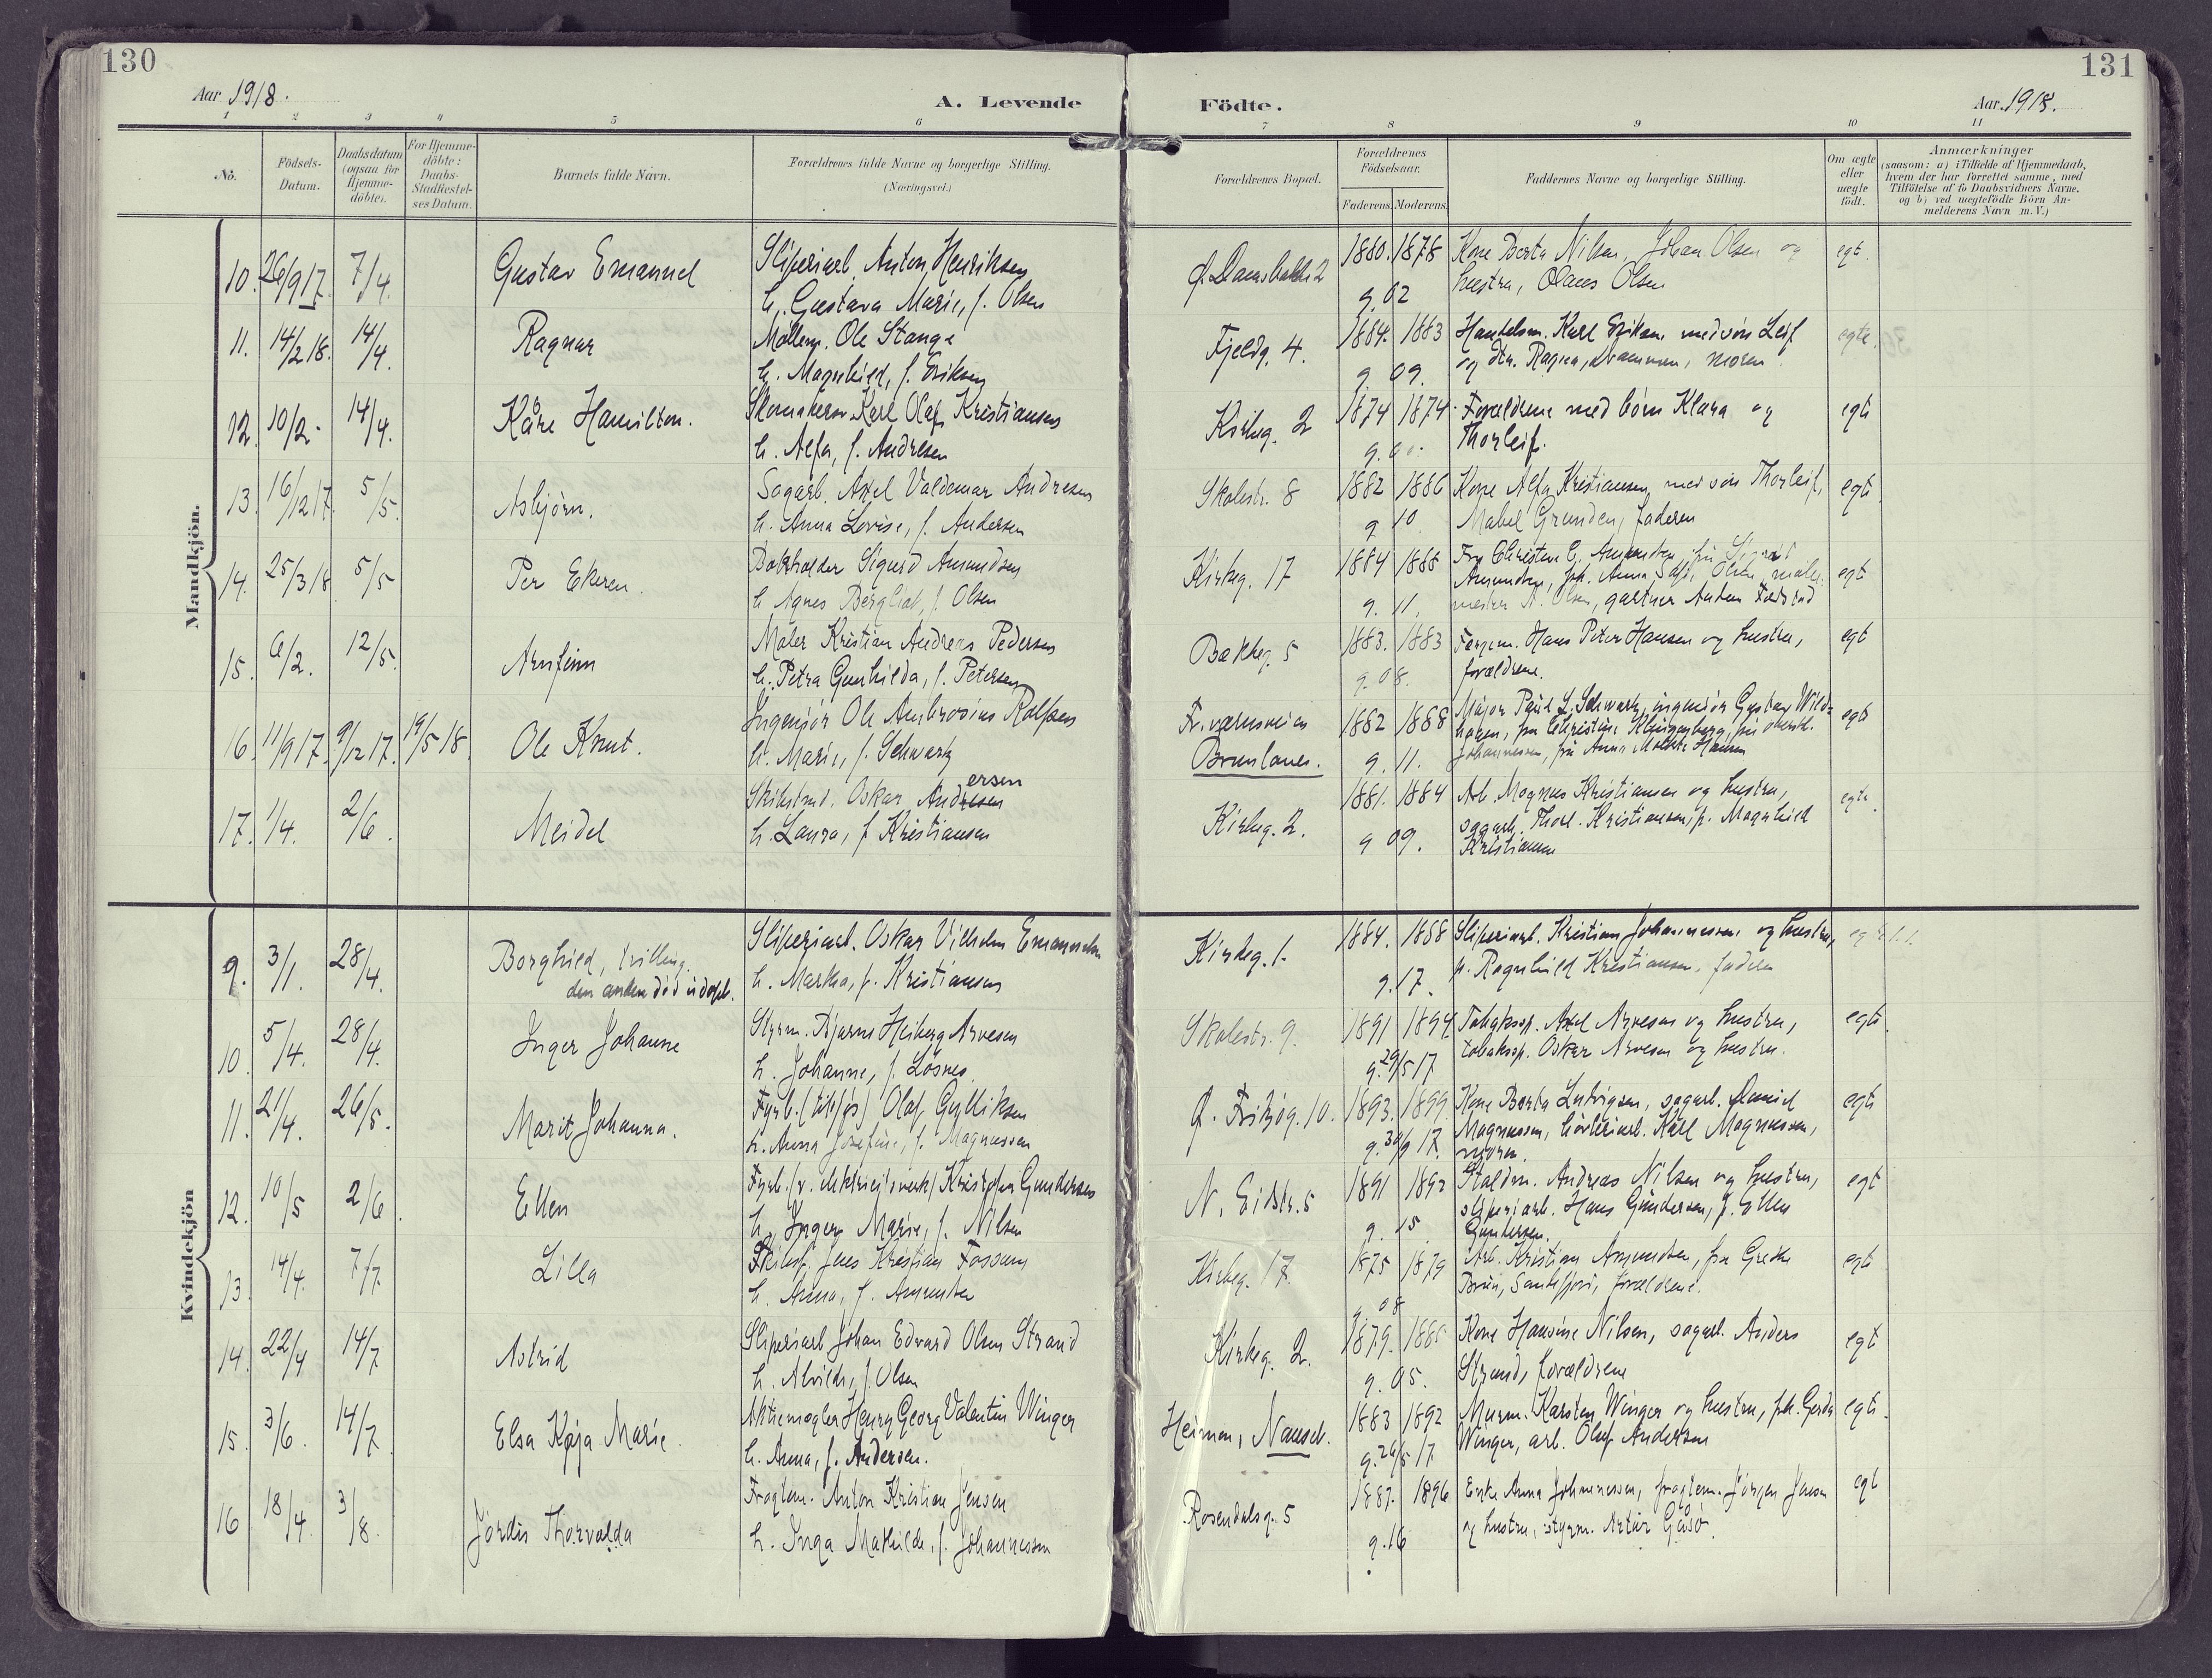 130
131
Aar 1918.
A. Levende
Födte.
Aar. 1918.
1 2 3 4 5 6 7 8 9 10 11
No.
Födsels-
Datum.
Daabsdatum
(ogsaa for
Hjemme-
döbte).
For Hjemme-
döbte:
Daabs-
Stadfæstel-
ses Datum.
Barnets fulde Navn.
Forældrenes fulde Navne og borgerlige Stilling.
(Næringsvei.)
Forældrenes Bopæl.
Forældrenes
Födselsaar.
Faderens. Moderens.
Faddernes Navne og borgerlige Stilling.
Om ægte
eller
uægte
født.
Anmærkninger
(saasom: a) i Tilfælde af Hjemmedaab,
hvem der har forrettet samme, med
Tilföielse af to Daabsvidners Navne.
og b) ved uægtefödte Börn An-
melderens Navn m. V.)
Mandkjön.
10. 26/9 17. 7/4. Gustav Emanuel Sliperiarb. Anton Henriksen 1880. 1878 Kone Berta Nilsen, Johan Olsen og egt.
h. Gustava Marie, f. Olsen g. 02 hustru, Olaus Olsen
11. 14/2 18. 14/4. Ragnar Møllerm. Ole Stange Fjeldg. 4. 1884. 1883 Handelsm. Karl Eriksen med søn Leif egte.
h. Magnhild, f. Eriksen g. 09. og dtr. Ragna, Drammen, moren
12. 10/2. 14/4. Kåre Hamilton. Skomakersv. Karl Olaf Kristiansen Kirkeg. 2 1874 1874 Forældrene med børn Klara og egte
h. Alfa, f. Andresen Thorleif.
13. 16/12 17. 5/5. Asbjørn. Sagarb. Axel Valdemar Andresen Skolestr. 8 1882 1886 Kone Alfa Kristiansen med søn Thorleif, egte
h. Anna Lovise, f. Andersen g. 10 Mabel Grunden, faderen
14. 25/3 18 5/5 Per Ekeren. Bokholder Sigurd Amundsen Kirkeg. 17 1884 1888 egt
h. Agnes Bergliot, f. Olsen g. 11. Olsen, gartner Anton
15. 6/2. 12/5. Arnfinn Maler Kristian Andreas Pedersen Bakkeg. 5 1883. 1883 Hans Peter Hansen og hustru, egt
h. Petra Gunhilda, f. Petersen g. 08. forældrene.
16. 11/9 17. 9/12 17. 19/5 18. Ole Knut. Ingeniør Ole Ambrosius Rolfsen Fr.værnsveien 1882 1888 Major Paul L. Schwartz, ingeniør Gustav Wild- egte
h. Marie, f. Schwartz Brunlanes. g. 11. hagen, fru Christine Klingenberg, fru oberstl.
Johannessen, fru Anna Moltke Hansen
17. 1/4. 2/6. Meidel Oskar Andresen ersen Kirkeg. 2. 1881. 1884 Arb. Magnus Kristiansen og hustru, egte.
h. Laura, f. Kristiansen g 09. sagarb. Thorl. Kristiansen, p. Magnhild
Kristiansen
Kvindekjön
9. 3/1. 28/4. Borghild, tvilling. Sliperiarb. Oskar Vilhelm Emanuelsen Kirkeg. 1. 1884. 1888 Sliperiarb. Kristian Johannessen og hustru,
den anden død udøpt. h. Martha, f. Kristiansen g. 17. p. Ragnhild Kristiansen, faderen
10. 5/4. 28/4. Inger Johanne Styrm. Bjarne Heiberg Arvesen Skolestr. 9. 1891 1894 Tobaksop. Axel Arvesen og hustru, egte
h. Johanne, f. Løsnes g. 29/5 17 tobaksop. Oskar Arvesen og hustru.
11. 21/4. 26/5. Marit Johanna. Fyrb. (tilsjøs) Olaf Gylliksen Fritzøg. 10. 1893. 1899 Kone Berta Ludvigsen, sagarb. Daniel egte
h. Anna Josefine, f. Magnussen g. 30/9 17. Magnussen, Karl Magnussen,
moren.
12. 10/5 2/6. Ellen Fyrb. (v. elektricit.verk) Kristofer Gundersen N. Eidstr. 5 1891 1892 Staldm. Andreas Nilsen og hustru, egt
h. Inger Marie, f. Nilsen g. 15. sliperiarb. Hans Gundersen, p. Ellen
Gundersen.
13. 14/4. 7/7. Lilla Jens Kristian Fossum Kirkeg. 17. 1875 1879 Arb. Kristian Amundsen, fru Grethe egt
h. Anna, f. Amundsen g. 08 Sandefjord, forældrene.
14. 22/4 14/7 Astrid Sliperiarb. Johan Edvard Olsen Strand Kirkeg. 2. 1879. Kone Hansine Nilsen, sagarb. Anders egt
h. Alvilde, f. Olsen g. 05. Strand, forældrene
15. 3/6. 14/7. Elsa Kaja Marie. Aktiemægler Henry Georg Valentin Winger Heimen, Nanset. 1883 1892 Murm. Karsten Winger og hustru, frk. Gerda egte.
h. Anna, f. Andersen. g. 26/5 17. Winger, arb. Oluf Andersen
16 18/4. 3/8. Jordis Thorvalda Fragtem. Anton Kristian Jensen Rosendalsg. 5 1887. 1896 Enke Anna Johannessen, fragtem. Jørgen Jensen egt
h. Inga Mathilde, f. Johannessen g. 16 og hustru, styrm. Artur Gåsø.